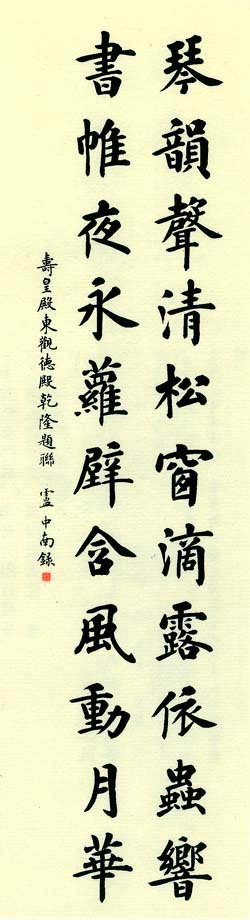 琴韻聲清松窗滴露依蟲響
書帷夜永蘿壁含風動月華
壽皇殿東觀德殿乾隆題聯 盧中南錄